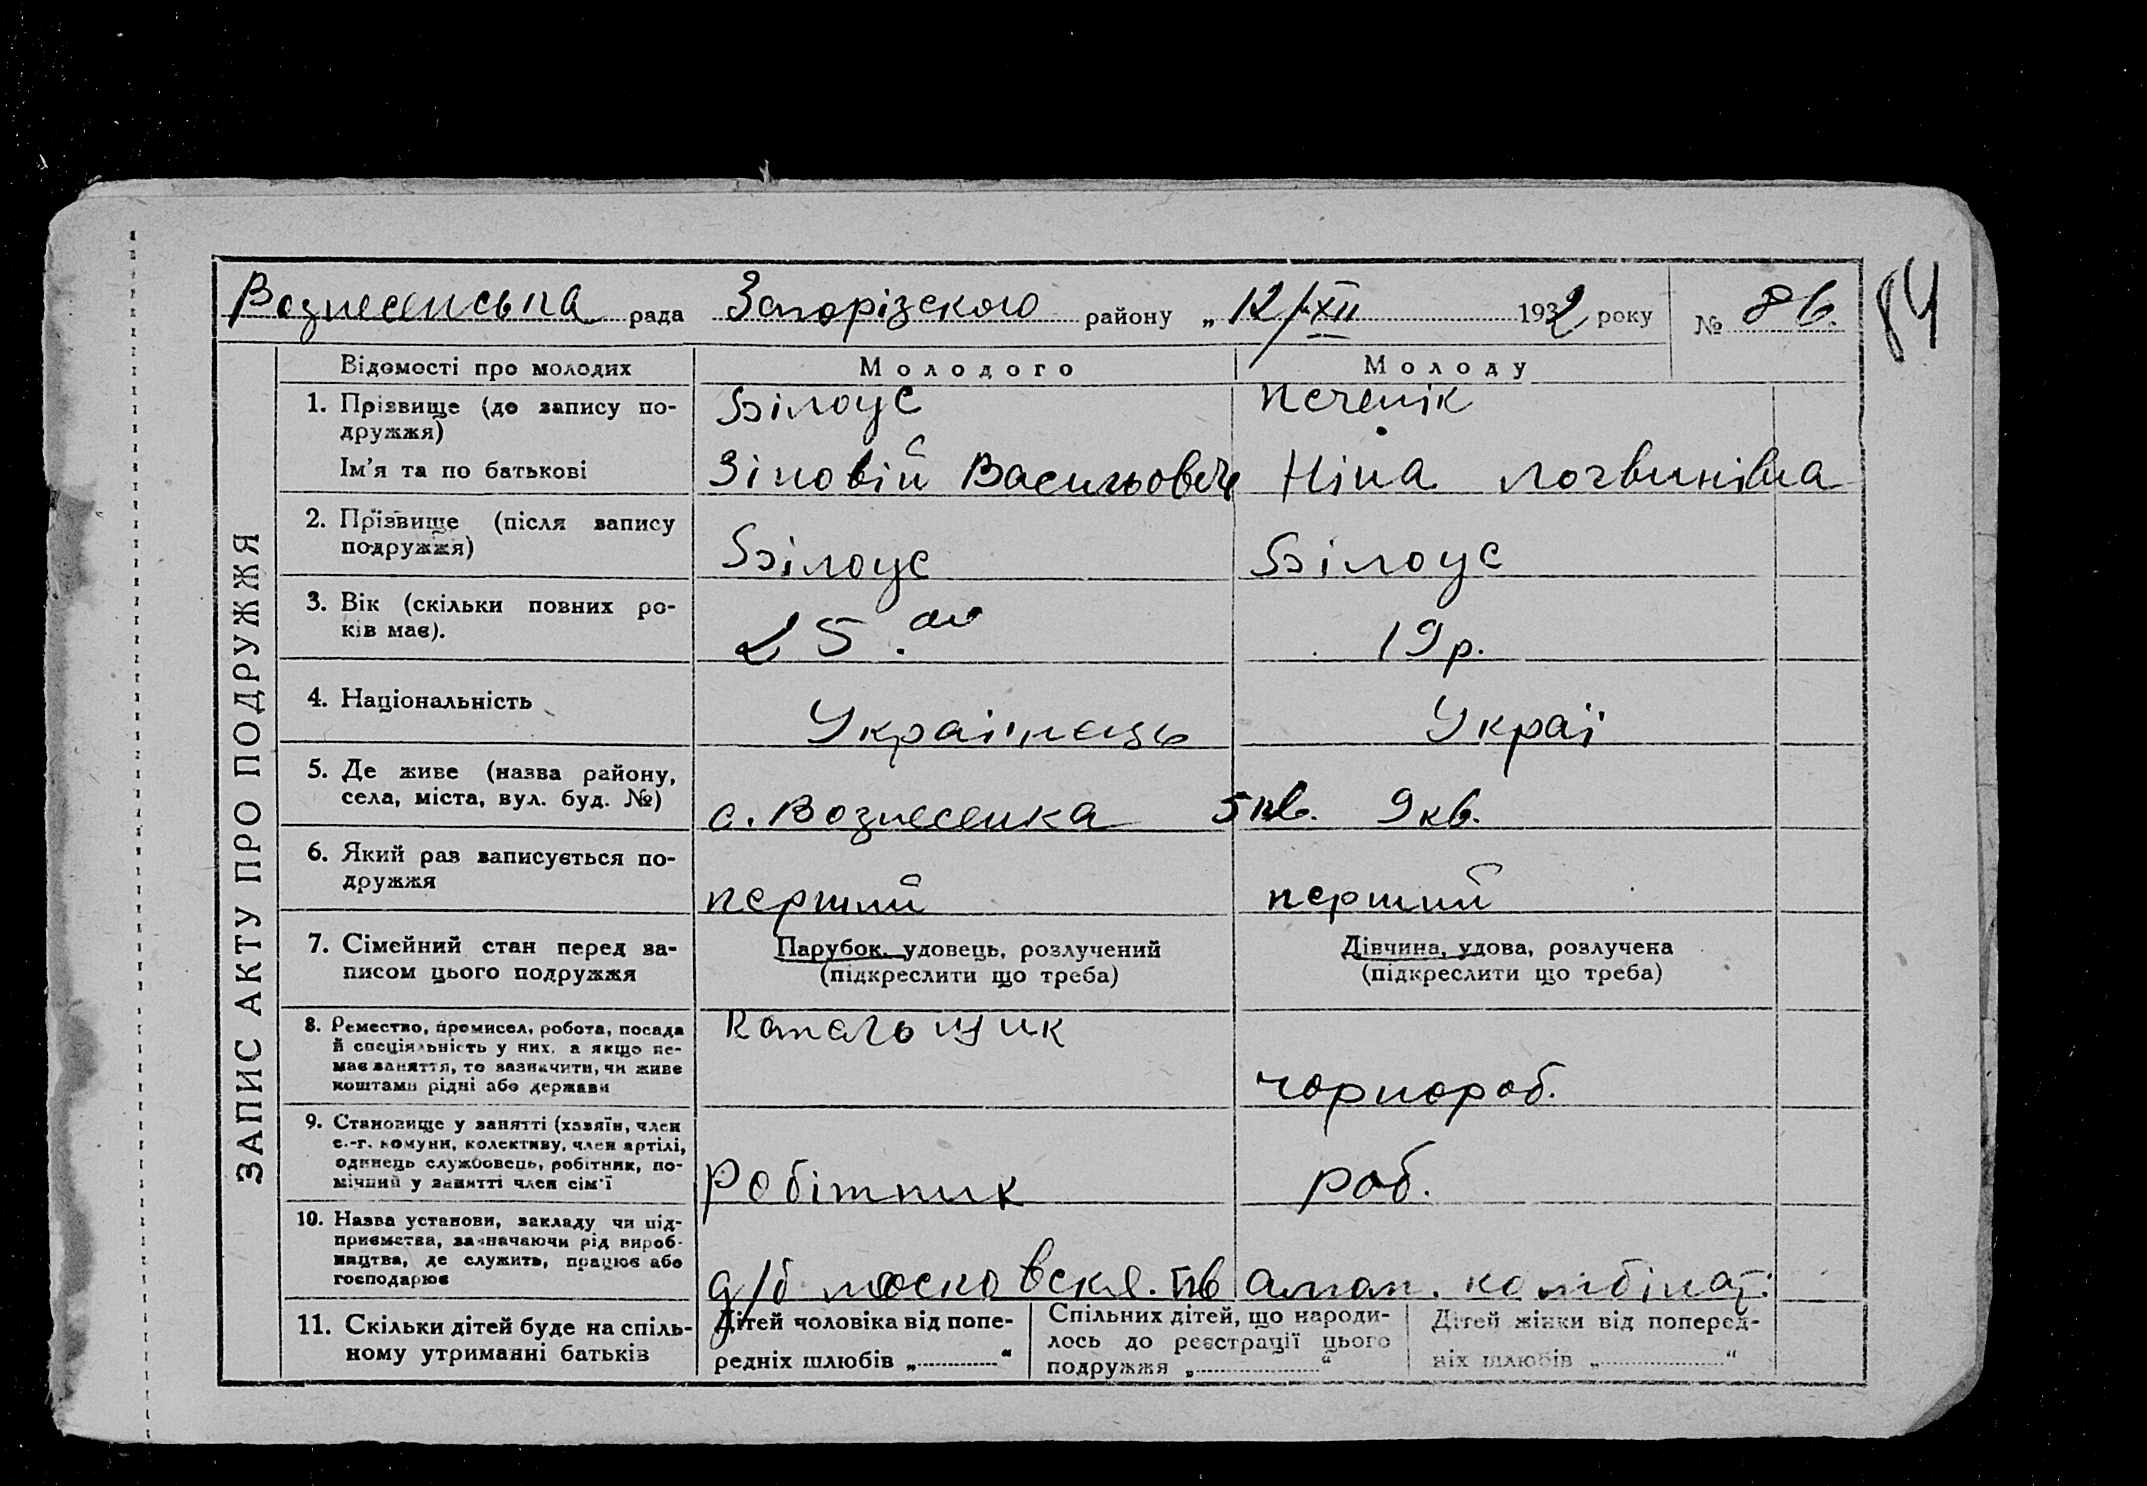 Вознесенська рада Запорізского району „ 12/XII 1932 року № 86.
84
ЗАПИС АКТУ ПРО ПОДРУЖЖЯ
Відомості про молодих Молодого Молоду
1. Прізвище (до запису по- Білоус Печенік
дружжя)
Ім'я та по батькові Зіновій Васильович Ніна Логвинівна
2. Прізвище (після запису
подружжя) Білоус Білоус
3. Вік (скільки повних ро-
ків має). 25. 19 р.
4. Національність Українець Украї
5. Де живе (назва району,
села, міста, вул. буд. №) с. Вознесенка 5 кв. 9 кв.
6. Який раз записується по-
дружжя перший перший
7. Сімейний стан перед за- Парубок, удовець, розлучений Дівчина, удова, розлучена
писом цього подружжя (підкреслити що треба) (підкреслити що треба)
8. Ремество, промисел, робота, посада Катальщик
й спеціяльність у них, а якщо не-
має заняття, то зазначити, чи живе
коштами рідні або держави чорнороб.
9. Становище у занятті (хазяїн, член
с.-г. комуни, колективу, член артілі,
одинець службовець, робітник, по-
мічний у занятті член сім'ї Робітник роб.
10. Назва установи, закладу чи під-
приємства, зазначаючи рід вироб-
ництва, де служить, працює або
господарює д/б комбінат.
11. Скільки дітей буде на спіль- Дітей чоловіка від попе- Спільних дітей, що народи- Дітей жінки від поперед-
ному утриманні батьків редніх шлюбів „ “ лось до реєстрації цього ніх шлюбів „ “
подружжя „ “